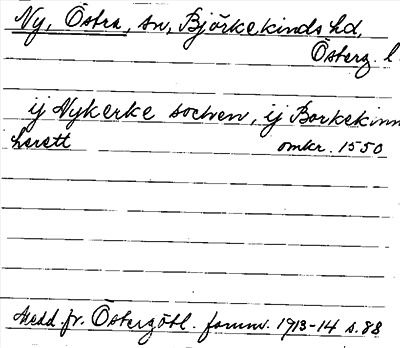 Ny, Östra, sn, Björkekinds hd,
Österg. l.
ij Nykerke sochen, ij Borkekinn
herett omkr. 1550
Medd. fr. Östergötl. fornm. 1913-14 s. 88